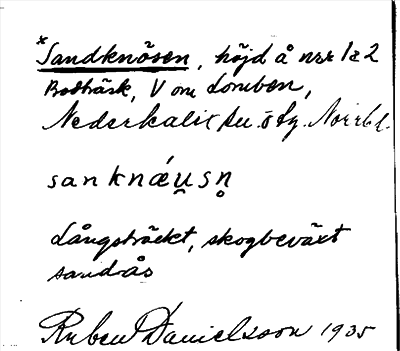 *Sandknösen, höjd å nrr 1 & 2
Bodträsk, V om Lomben,
Nederkalix sn. ö lg. Norrb l.
san knǽu̯sn̥
Långsträckt, skogbeväxt
sandås
Ruben Danielsson 1935